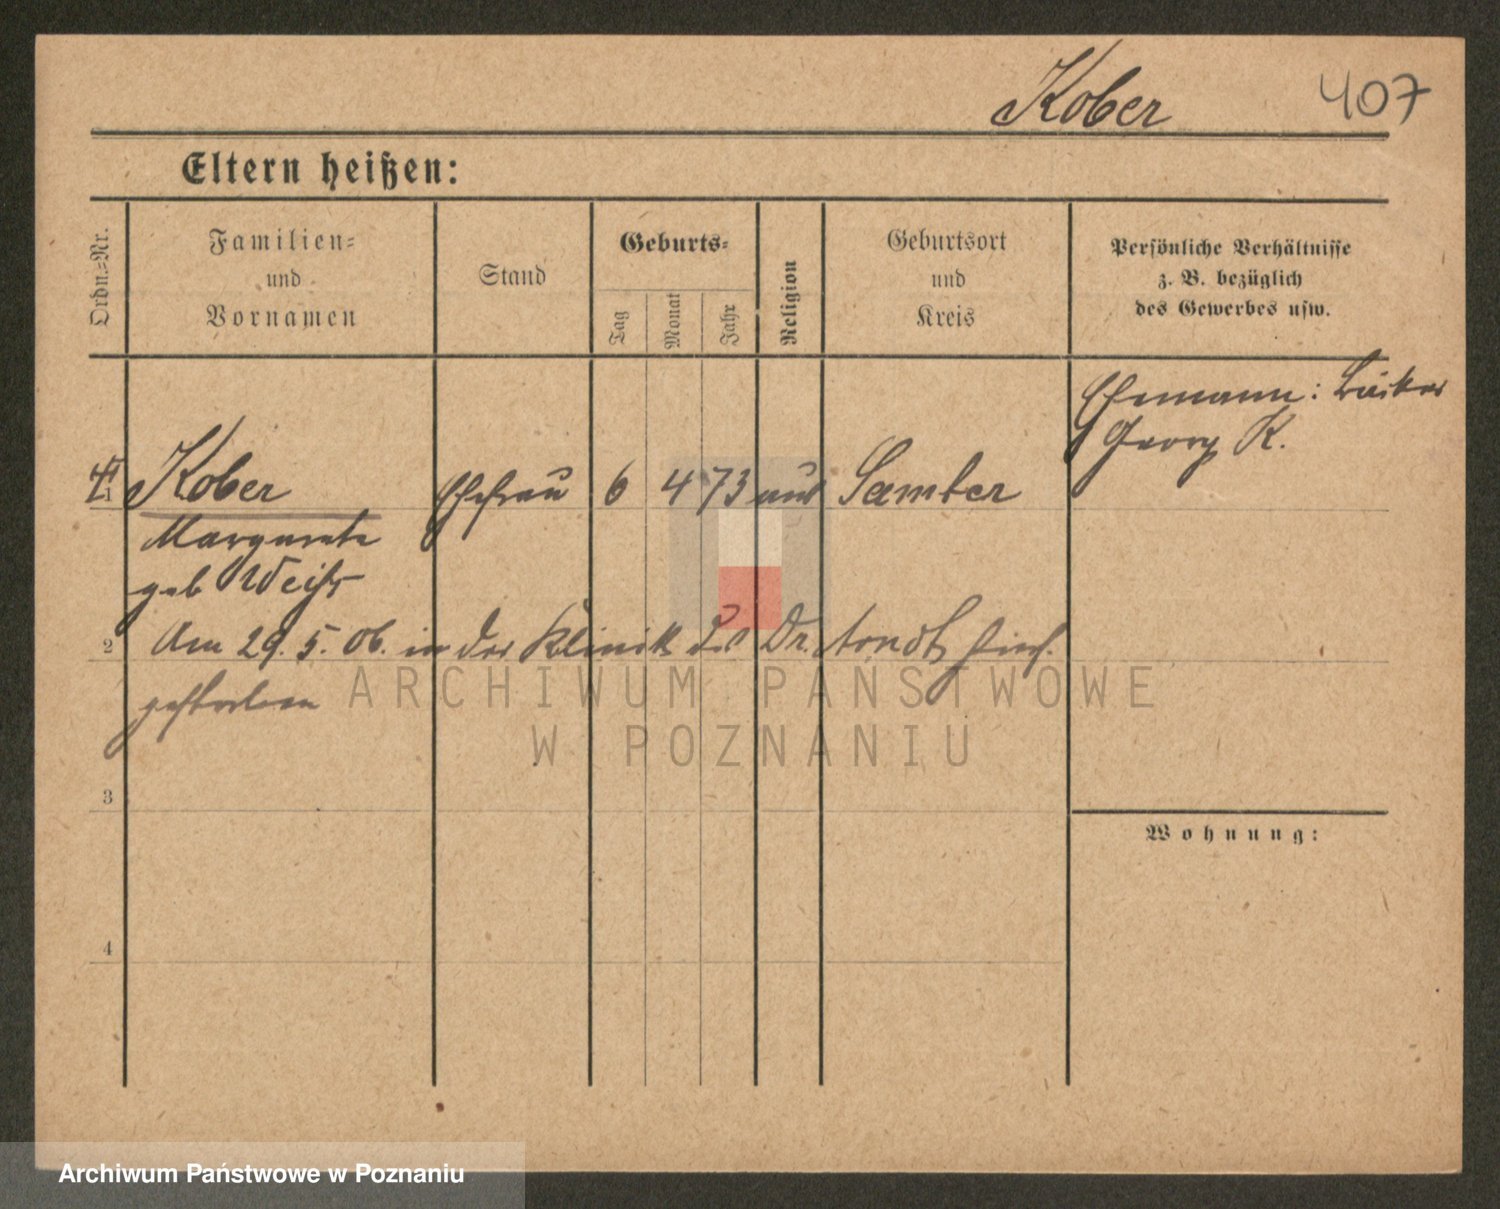 Kober 407
Eltern heißen:
Ordn.=Nr.
Familien=
und
Vornamen
Stand
Geburts=
Tag
Monat
Jahr
Religion
Geburtsort
und
Kreis
Persönliche Verhältnisse
z. B. bezüglich
des Gewerbes usw.
Ehemann:
Georg K.
1 Kober Ehefrau 6 4 73 Samter
Margarete
geb Weiß
2 Am 29. 5. 06. in der Klinik des Dr. Arndt hier.
gestorben
3
4
Wohnung:
ARCHIWUM PAŃSTWOWE
W POZNANIU
Archiwum Państwowe w Poznaniu